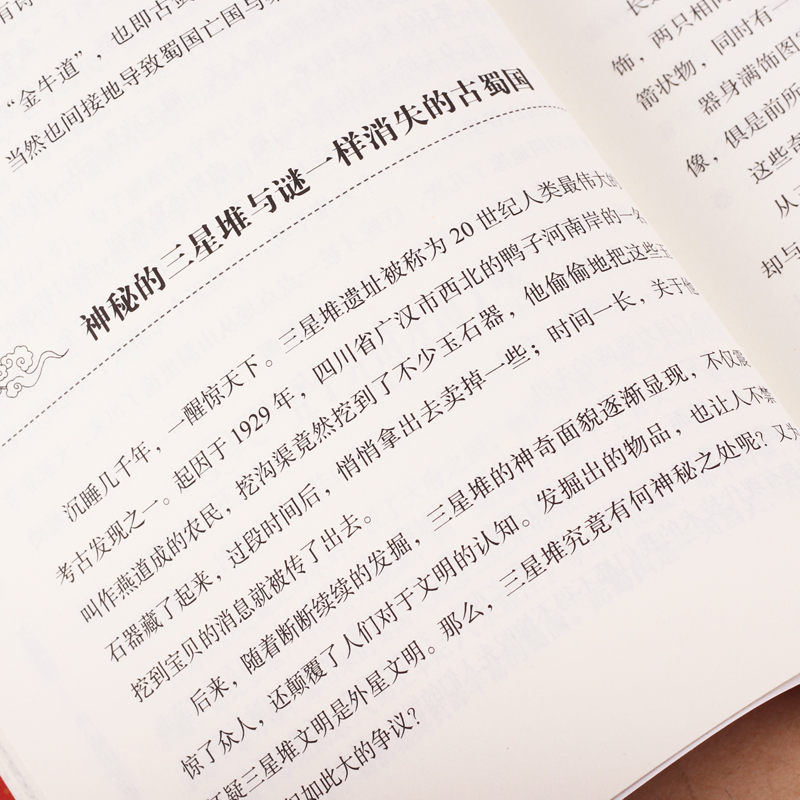 “金牛道”，也即古
当然也间接地导致蜀国亡国与
神秘的三星堆与谜一样消失的古蜀国
沉睡几千年，一醒惊天下。三星堆遗址被称为20世纪人类最伟大的
考古发现之一。起因于1929年，四川省广汉市西北的鸭子河南岸的一
叫作燕道成的农民，挖沟渠竟然挖到了不少玉石器，他偷偷地把这些玉
石器藏了起来，过段时间后，悄悄拿出去卖掉一些；时间一长，关于他
挖到宝贝的消息就被传了出去。
后来，随着断断续续的发掘，三星堆的神奇面貌逐渐显现，不仅震
惊了众人，还颠覆了人们对于文明的认知。发掘出的物品，也让人不禁
怀疑三星堆文明是外星文明。那么，三星堆究竟有何神秘之处呢？又为
如此大的争议？
饰，两只相同
箭状物，同时有一
器身满饰图案
像，俱是前所
这些奇
从
却与